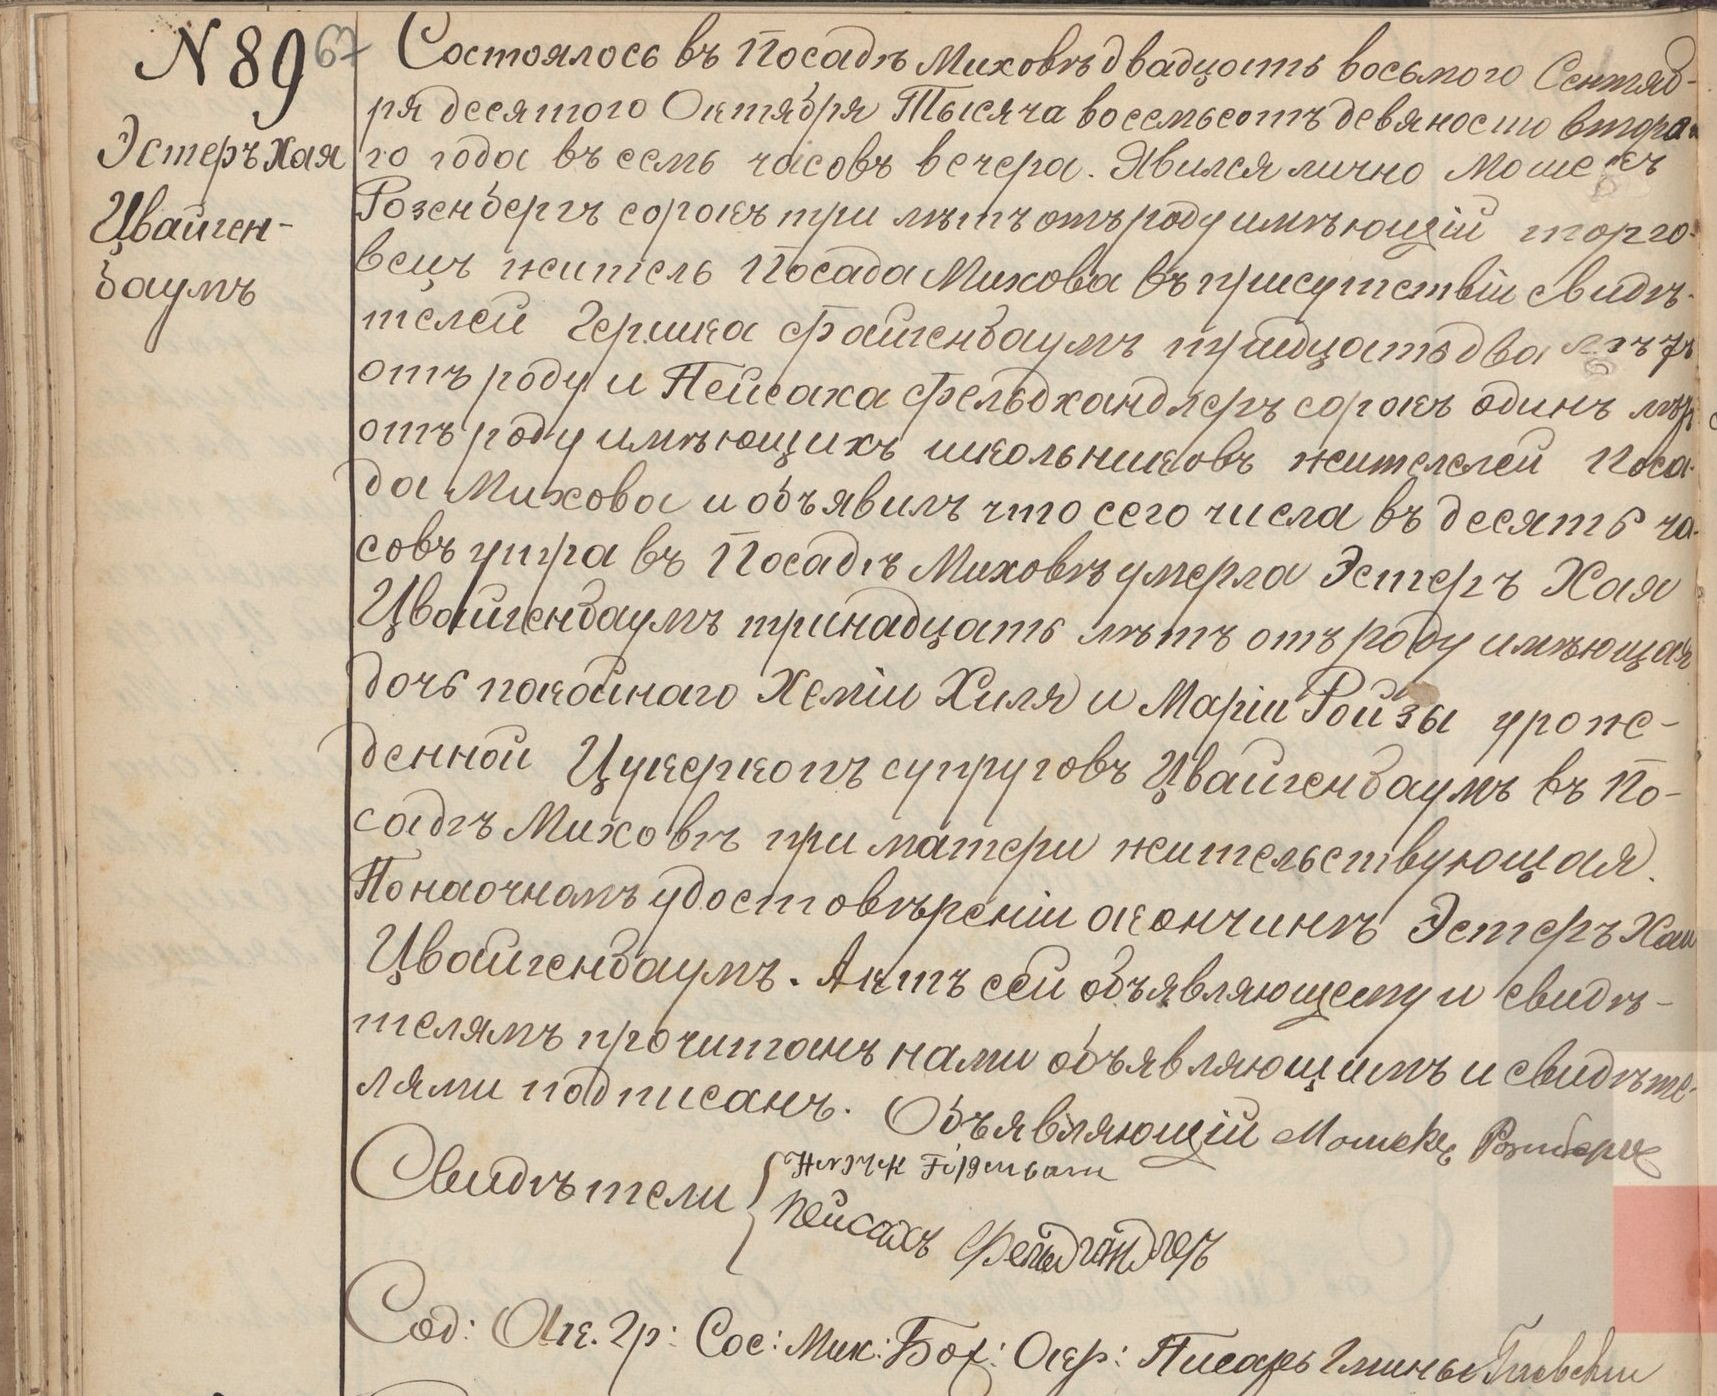 N 89 67
Эстеръ Хая
Цвайген-
баумъ
Состоялось въ Посадѣ Миховѣ двадцать восьмого Сентяб-
ря десятого Октября Тысяча восемьсотъ девяносто втора-
го года въ семь часовъ вечера. Явился лично Мошекъ
Розенбергъ сорокъ три лѣтъ отъ роду имѣющій торго-
вецъ житель Посада Михова въ присутствіи свидѣ-
телей Гершка Файгенбаумъ тридцать два лѣтъ
отъ роду и Пейсаха Фельдхандлеръ сорокъ одинъ лѣтъ
отъ роду имѣющихъ школьниковъ жителелей Поса-
да Михова и объявилъ что сего числа въ десять ча-
совъ утра въ Посадѣ Миховѣ умерла Эстеръ Хая
Цвайгенбаумъ тринадцать лѣтъ отъ роду имѣющая
дочь покойнаго Хеміи Хиля и Маріи Ройзы урож-
денной Цукеркопъ супруговъ Цвайгенбаумъ въ По-
садѣ Миховѣ при матери жительствующая.
По наочномъ удостовѣреніи о кончинѣ Эстеръ Хаи
Цвайгенбаумъ. Актъ сей объявляющему и свидѣ-
телямъ прочитанъ нами объявляющимъ и свидѣте-
лями подписанъ. Объявляющій Мошекъ Розенбергъ
Свидѣтели
Пейсахъ Фельдгандлеръ
Сод: Акт. Гр: Сос: Мих: Бож: Окр: Писарь Гмины